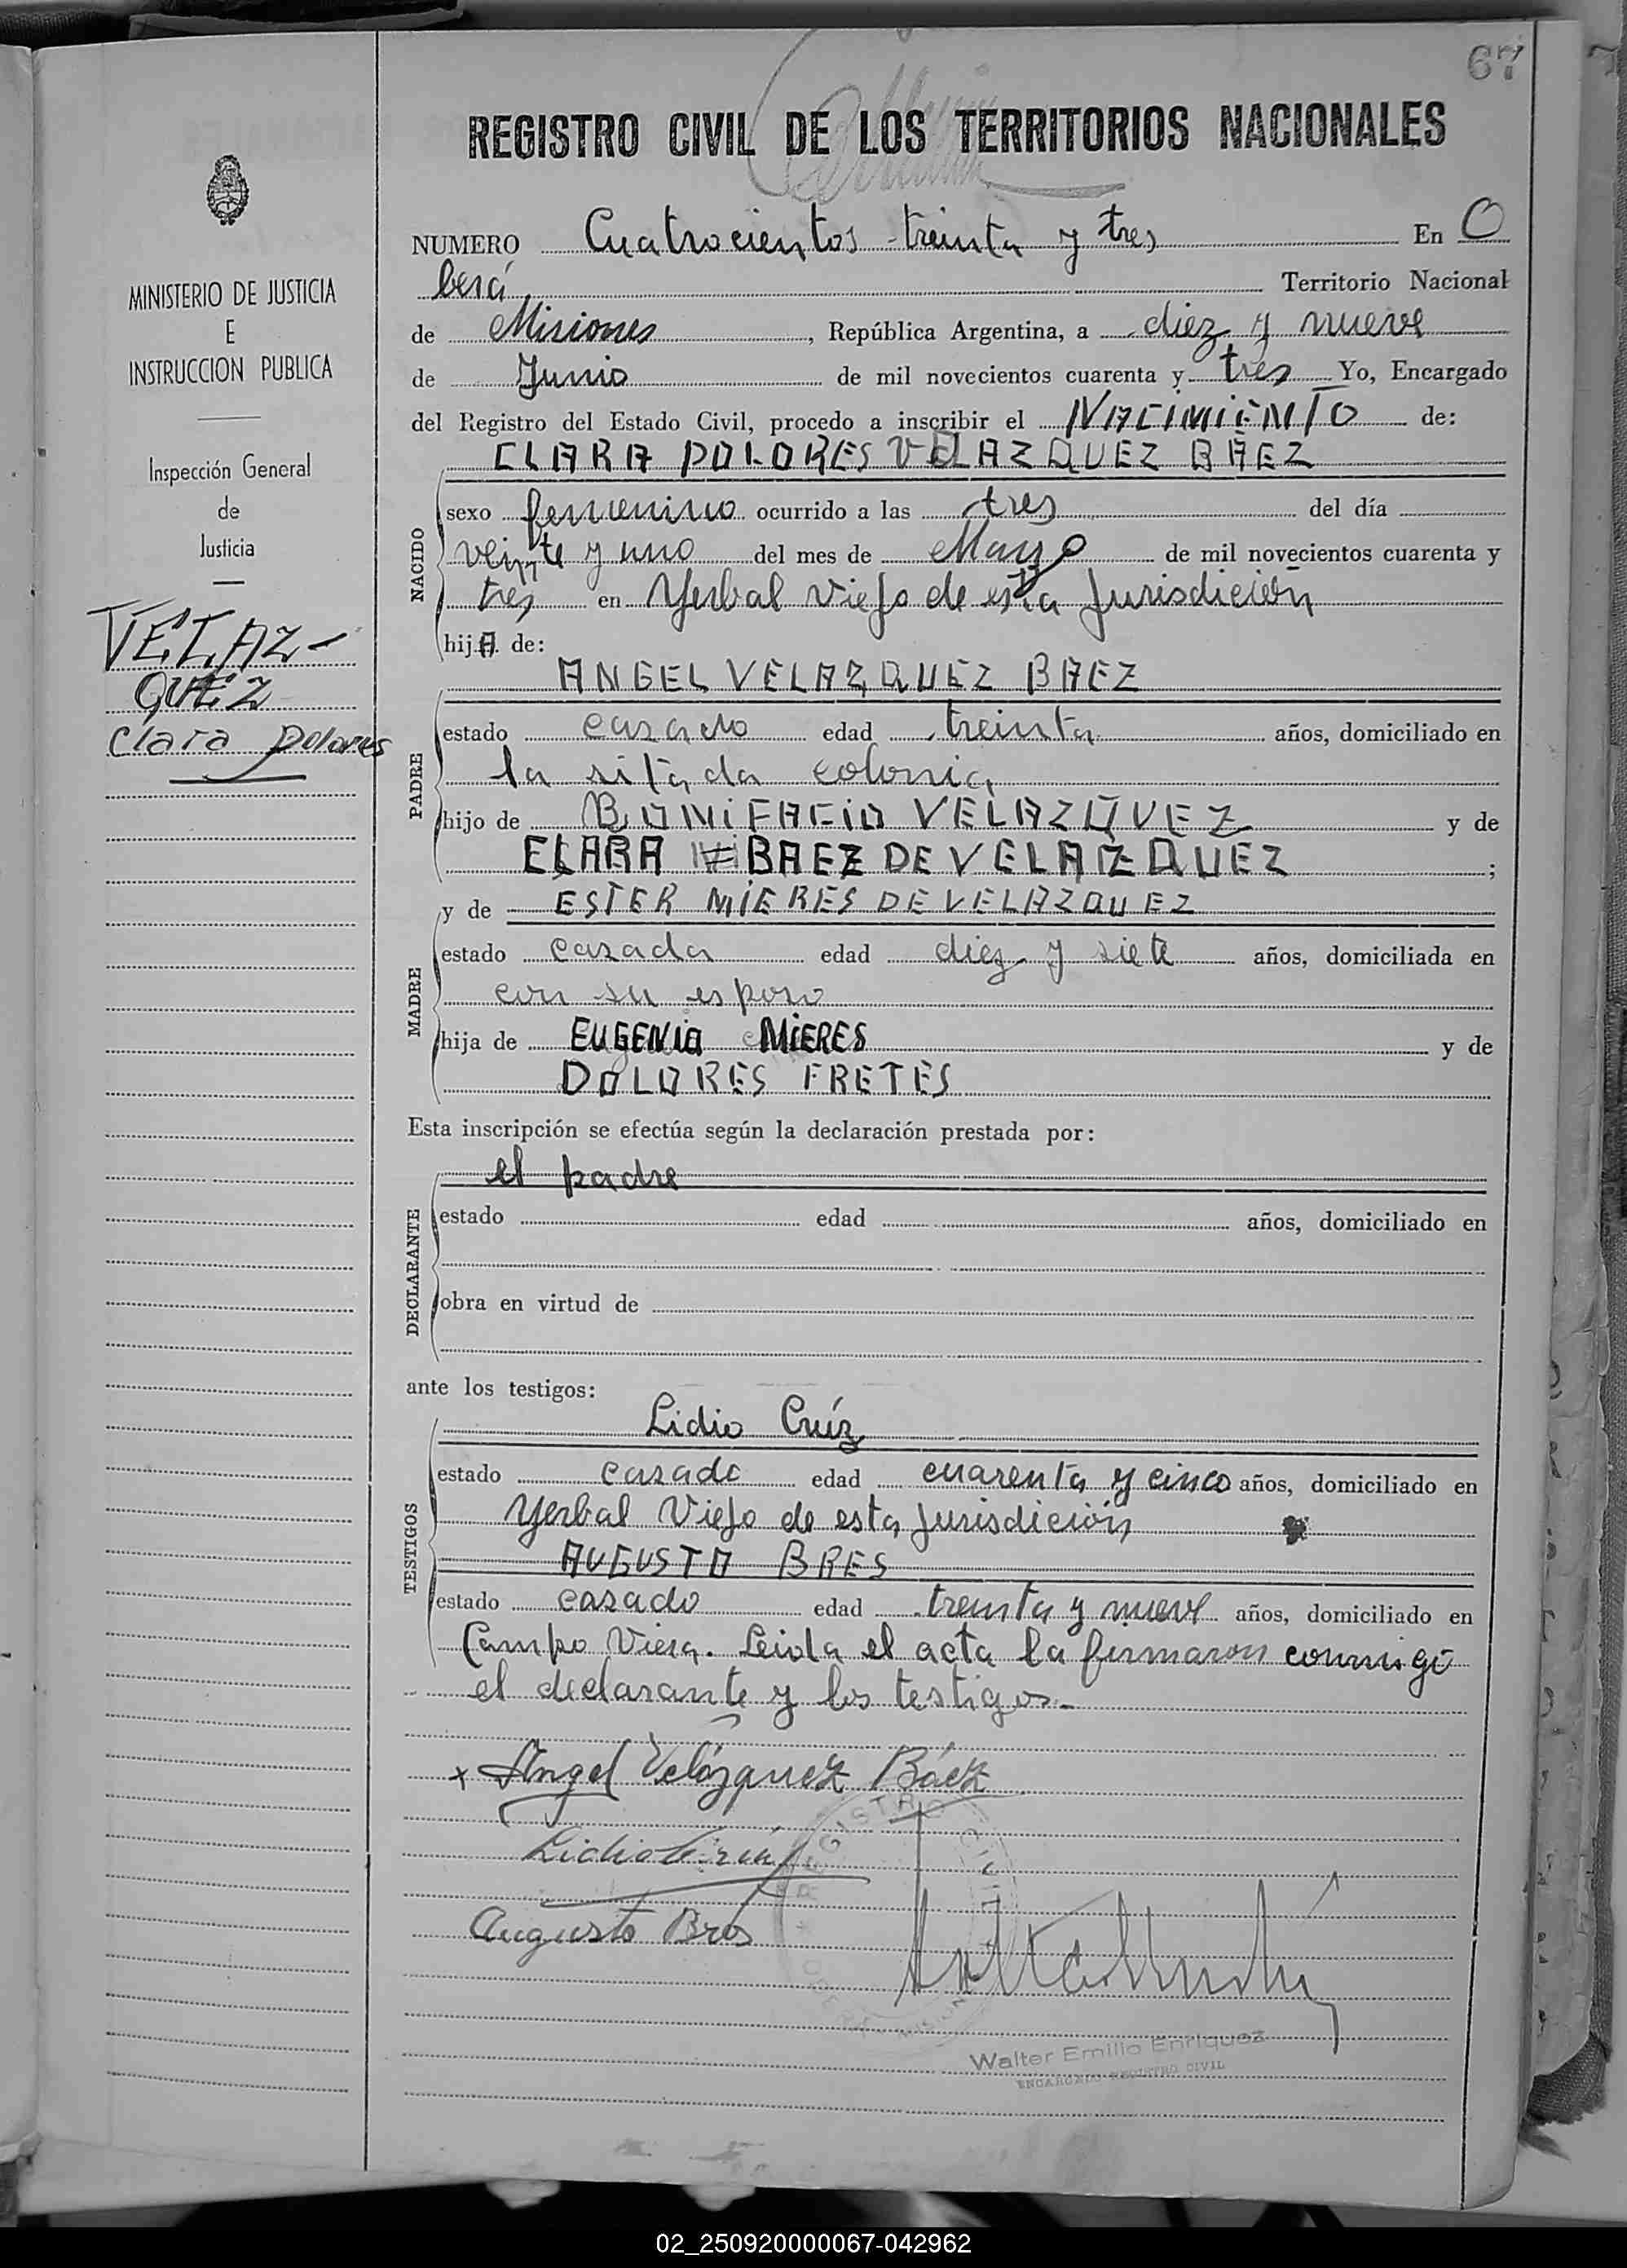 67
REGISTRO CIVIL DE LOS TERRITORIOS NACIONALES
NUMERO Cuatrocientos treinta y tres En O
berá Territorio Nacional
de Misiones, República Argentina, a diez y nueve
de Junio de mil novecientos cuarenta y tres Yo, Encargado
del Registro del Estado Civil, procedo a inscribir el NACIMIENTO de:
CLARA DOLORES VELAZQUEZ BAEZ
NACIDO
sexo femenino ocurrido a las tres del día
veinte y uno del mes de Marzo de mil novecientos cuarenta y
tres en Yerbal Viejo de esta Jurisdición
hijA de:
ANGEL VELAZQUEZ BAEZ
PADRE
estado casado edad treinta años, domiciliado en
la sitada colonia
hijo de BONIFACIO VELAZQUEZ y de
CLARA BAEZ DE VELAZQUEZ ;
y de ESTER MIERES DE VELAZQUEZ
MADRE
estado casada edad diez y siete años, domiciliada en
con su esposo
hija de EUGENIA MIERES y de
DOLORES FRETES
Esta inscripción se efectúa según la declaración prestada por:
el padre
DECLARANTE
estado edad años, domiciliado en
obra en virtud de
ante los testigos:
Lidio Cruz
TESTIGOS
estado casado edad cuarenta y cinco años, domiciliado en
Yerbal Viejo de esta Jurisdición
AUGUSTO BRES
estado casado edad treinta y nueve años, domiciliado en
Campo Viera. Leida el acta la firmaron conmigo
el declarante y los testigos.-
x Angel Velázquez Báez
Augusto Bres
REGISTRO CIVIL
Walter Emilio Enriquez
ENCARGADO REGISTRO CIVIL
MINISTERIO DE JUSTICIA
E
INSTRUCCION PUBLICA
Inspección General
de
Justicia
VELAZ-
QUEZ
Clara Dolores
02_250920000067-042962